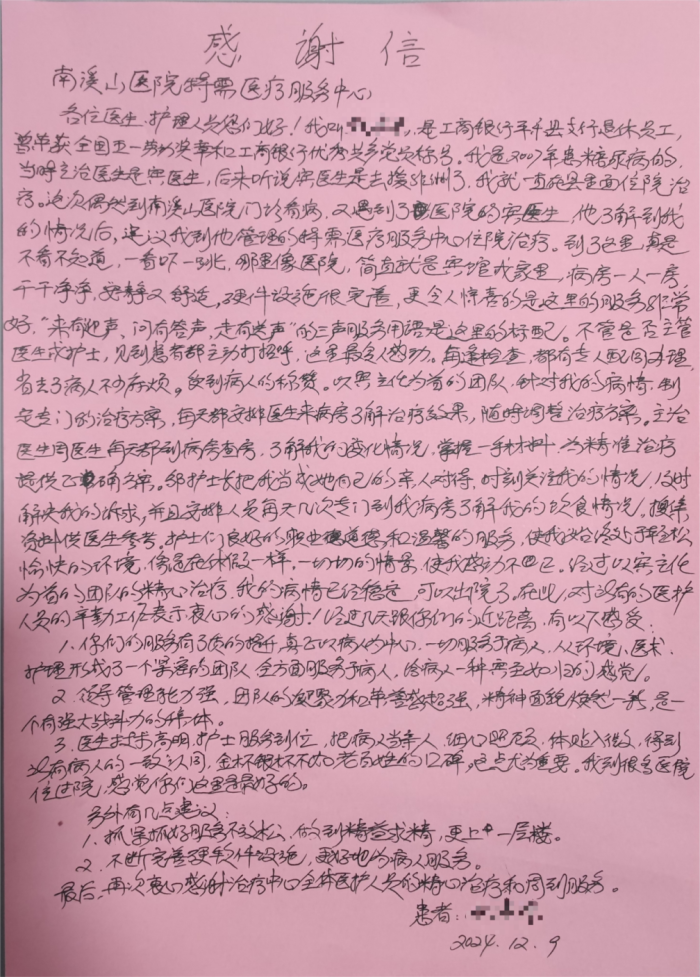 感谢信
南溪山医院特需医疗服务中心：
各位医生、护理人员您们好！我叫，是工商银行平乐县支行退休员工，
曾荣获全国五一劳动奖章和工商银行优秀共产党员称号。我是2007年患糖尿病的，
当时主治医生是宾医生，后来听说宾医生是去援非洲了，我就一直在县里面住院治
疗。这次偶然到南溪山医院门诊看病，又遇到了医院的宾医生，他了解到我
的情况后，建议我到他管理的特需医疗服务中心住院治疗。到了这里，真是
不看不知道，一看吓一跳，哪里像医院，简直就是宾馆或家里，病房一人一房
干干净净，安静又舒适，硬件设施很完善，更令人惊喜的是这里的服务非常
好，“来有迎声、问有答声，走有送声”的三声服务用语是这里的标配。不管是否主管
医生或护士，见到患者都主动打招呼，这里最令人感动。每逢检查，都有专人配同办理，
省去了病人不少麻烦。受到病人的称赞。以宾主任为首的团队，针对我的病情，制
定专门的治疗方案，每天都安排医生来病房了解治疗效果，随时调整治疗方案。主治
医生周医生每天都到病房查房，了解我的变化情况，掌握一手材料，为精准治疗
提供正确方案。邹护士长把我当成她自己的亲人对待，时刻关注我的情况，及时
解决我的诉求，并且安排人员每天几次专门到我病房了解我的饮食情况，搜集
资料供医生参考。护士们良好的职业道德和温馨的服务，使我始终处于轻松
愉快的环境，像退在休假一样，一切切的情景使我感动不已。经过以宾主任
为首的团队的精心治疗，我的病情已经稳定，可以出院了。在此，对所有的医护
人员的辛勤工作表示衷心的感谢！经过几天跟你们的近距离，有以下感受：
1.你们的服务有了质的提升，真正以病人为中心，一切服务于病人，从环境、医术、
护理形成了一个紧密的团队，全方面服务于病人，给病人一种宾至如归的感觉。
2.领导管理能力强，团队的凝聚力和荣誉感超强，精神面貌焕然一新，是一
个有强大战斗力的集体。
3.医生技术高明，护士服务到位，把病人当亲人，细心照顾，体贴入微，得到
所有病人的一致认同，金杯银杯不如老百姓的口碑，这点尤为重要。我到很多医院
住过院，感觉你们这里是最好的。
另外有几点建议：
1.抓紧抓好服务不放松，做到精益求精，更上一层楼。
2.不断完善硬软件设施，更好地为病人服务。
最后，再次衷心感谢治疗中心全体医护人员的精心治疗和周到服务。
患者：
2024.12.9